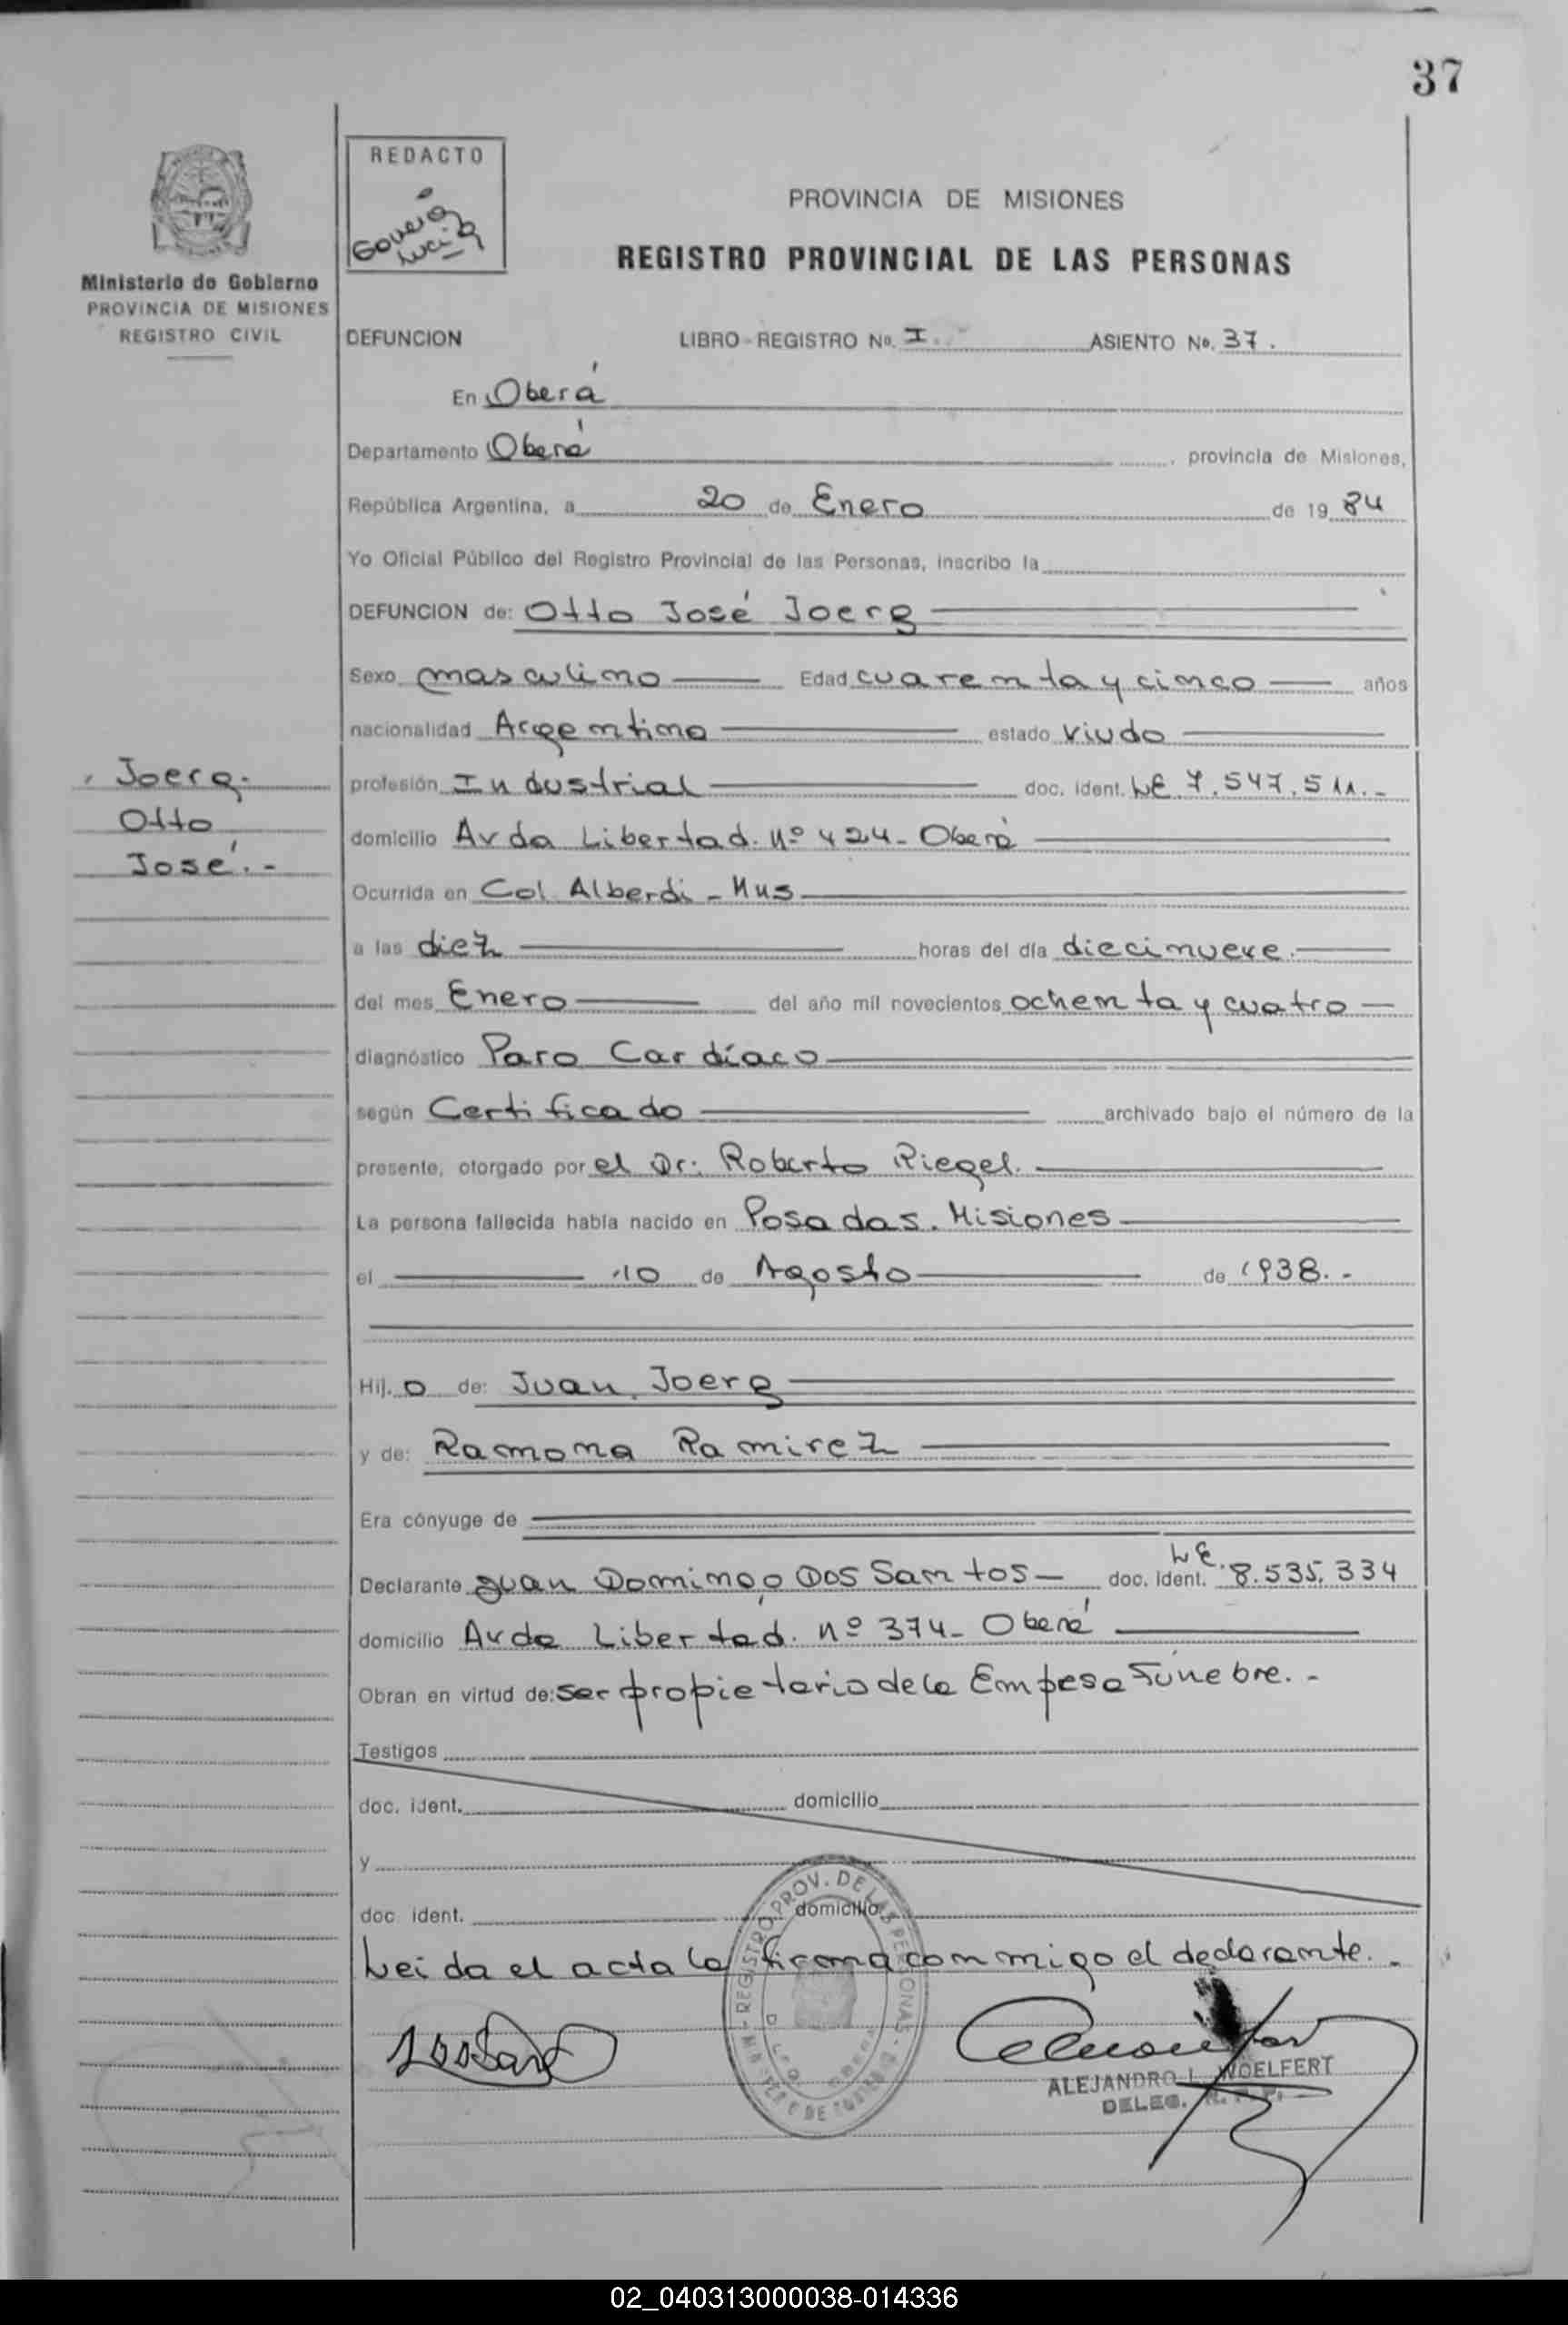 37
REDACTO
Ministerio de Gobierno
PROVINCIA DE MISIONES
REGISTRO CIVIL
PROVINCIA DE MISIONES
REGISTRO PROVINCIAL DE LAS PERSONAS
DEFUNCION LIBRO-REGISTRO No. I. ASIENTO No. 37.
En Oberá
Departamento Oberá, provincia de Misiones,
República Argentina, a 20 de Enero de 1984
Yo Oficial Público del Registro Provincial de las Personas, inscribo la
DEFUNCION de: Otto José Joerg
Sexo masculino Edad cuarenta y cinco años
nacionalidad Argentino estado Viudo
Joerg.
Otto
José.-
profesión Industrial doc. ident. LE 7.547.511.-
domicilio Avda Libertad. Nº 424- Oberá
Ocurrida en Col. Alberdi - Mns
a las diez horas del día diecinueve.
del mes Enero del año mil novecientos ochenta y cuatro
diagnóstico Paro Cardíaco
según Certificado archivado bajo el número de la
presente, otorgado por el Dr: Roberto Riegel.
La persona fallecida había nacido en Posadas. Misiones
el 10 de Agosto de 1938.-
Hij. o de: Juan. Joerg
y de: Ramona Ramirez
Era cónyuge de
Declarante Juan Domingo Dos Santos doc. ident. LE. 8.535.334
domicilio Avda Libertad. nº 374- Oberá
Obran en virtud de: ser propietario de la Empesa Fúnebre.-
Testigos
doc. ident. domicilio
y
doc. ident. domicilio
Leida el acta la firma conmigo el declarante.-
REGISTRO PROV. DE LAS PERSONAS
ALEJANDRO L. WOELFERT
DELEG. R.P.P.
02_040313000038-014336